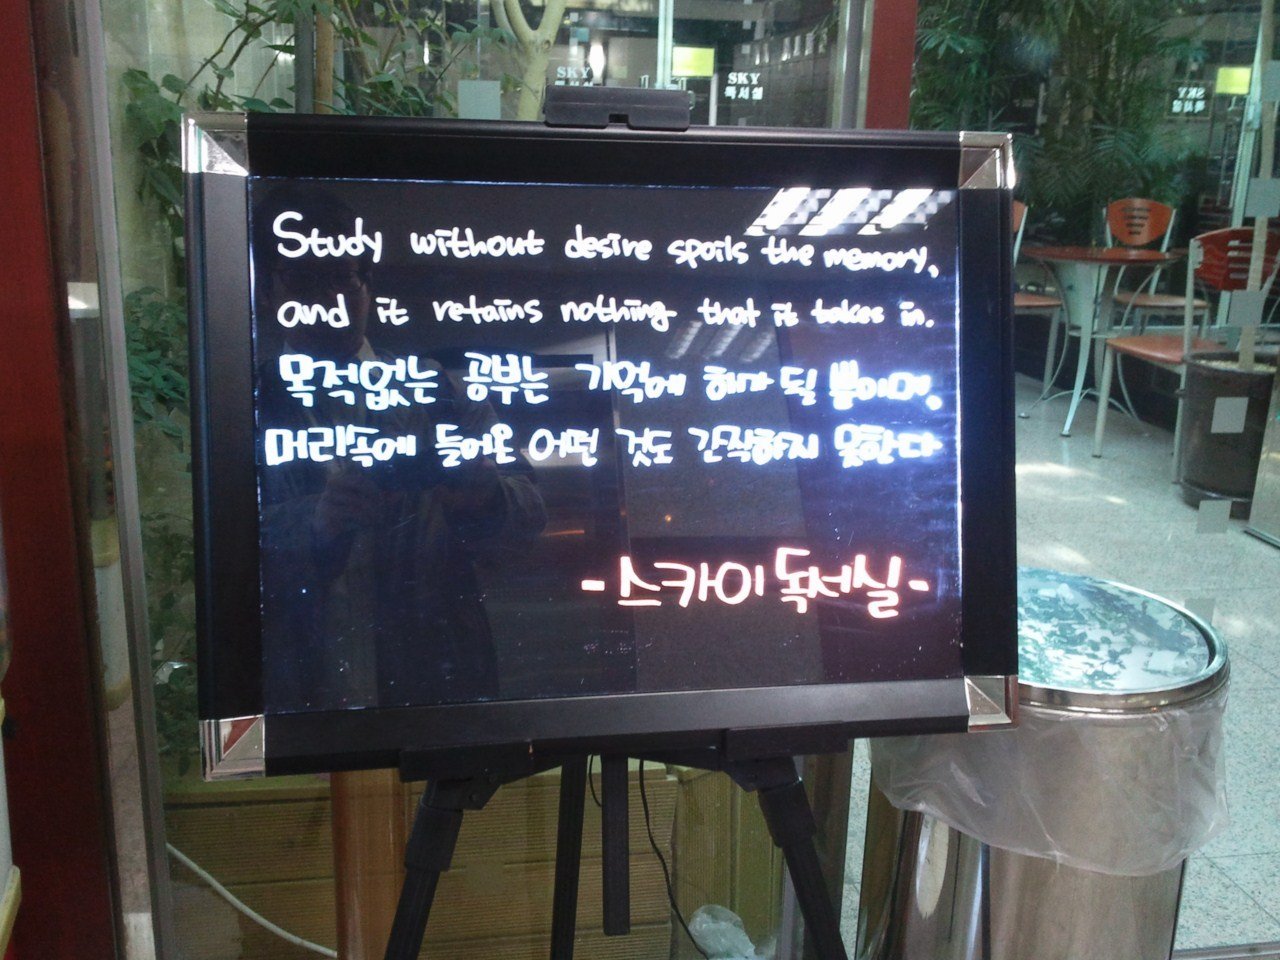 SKY
SKY
독서실
SKY
독서실
Study without desire spoils the memory,
and it retains nothing that it takes in.
목적없는 공부는 기억에 해가 될 뿐이며,
머리속에 들어온 어떤 것도 간직하지 못한다
-스카이 독서실-